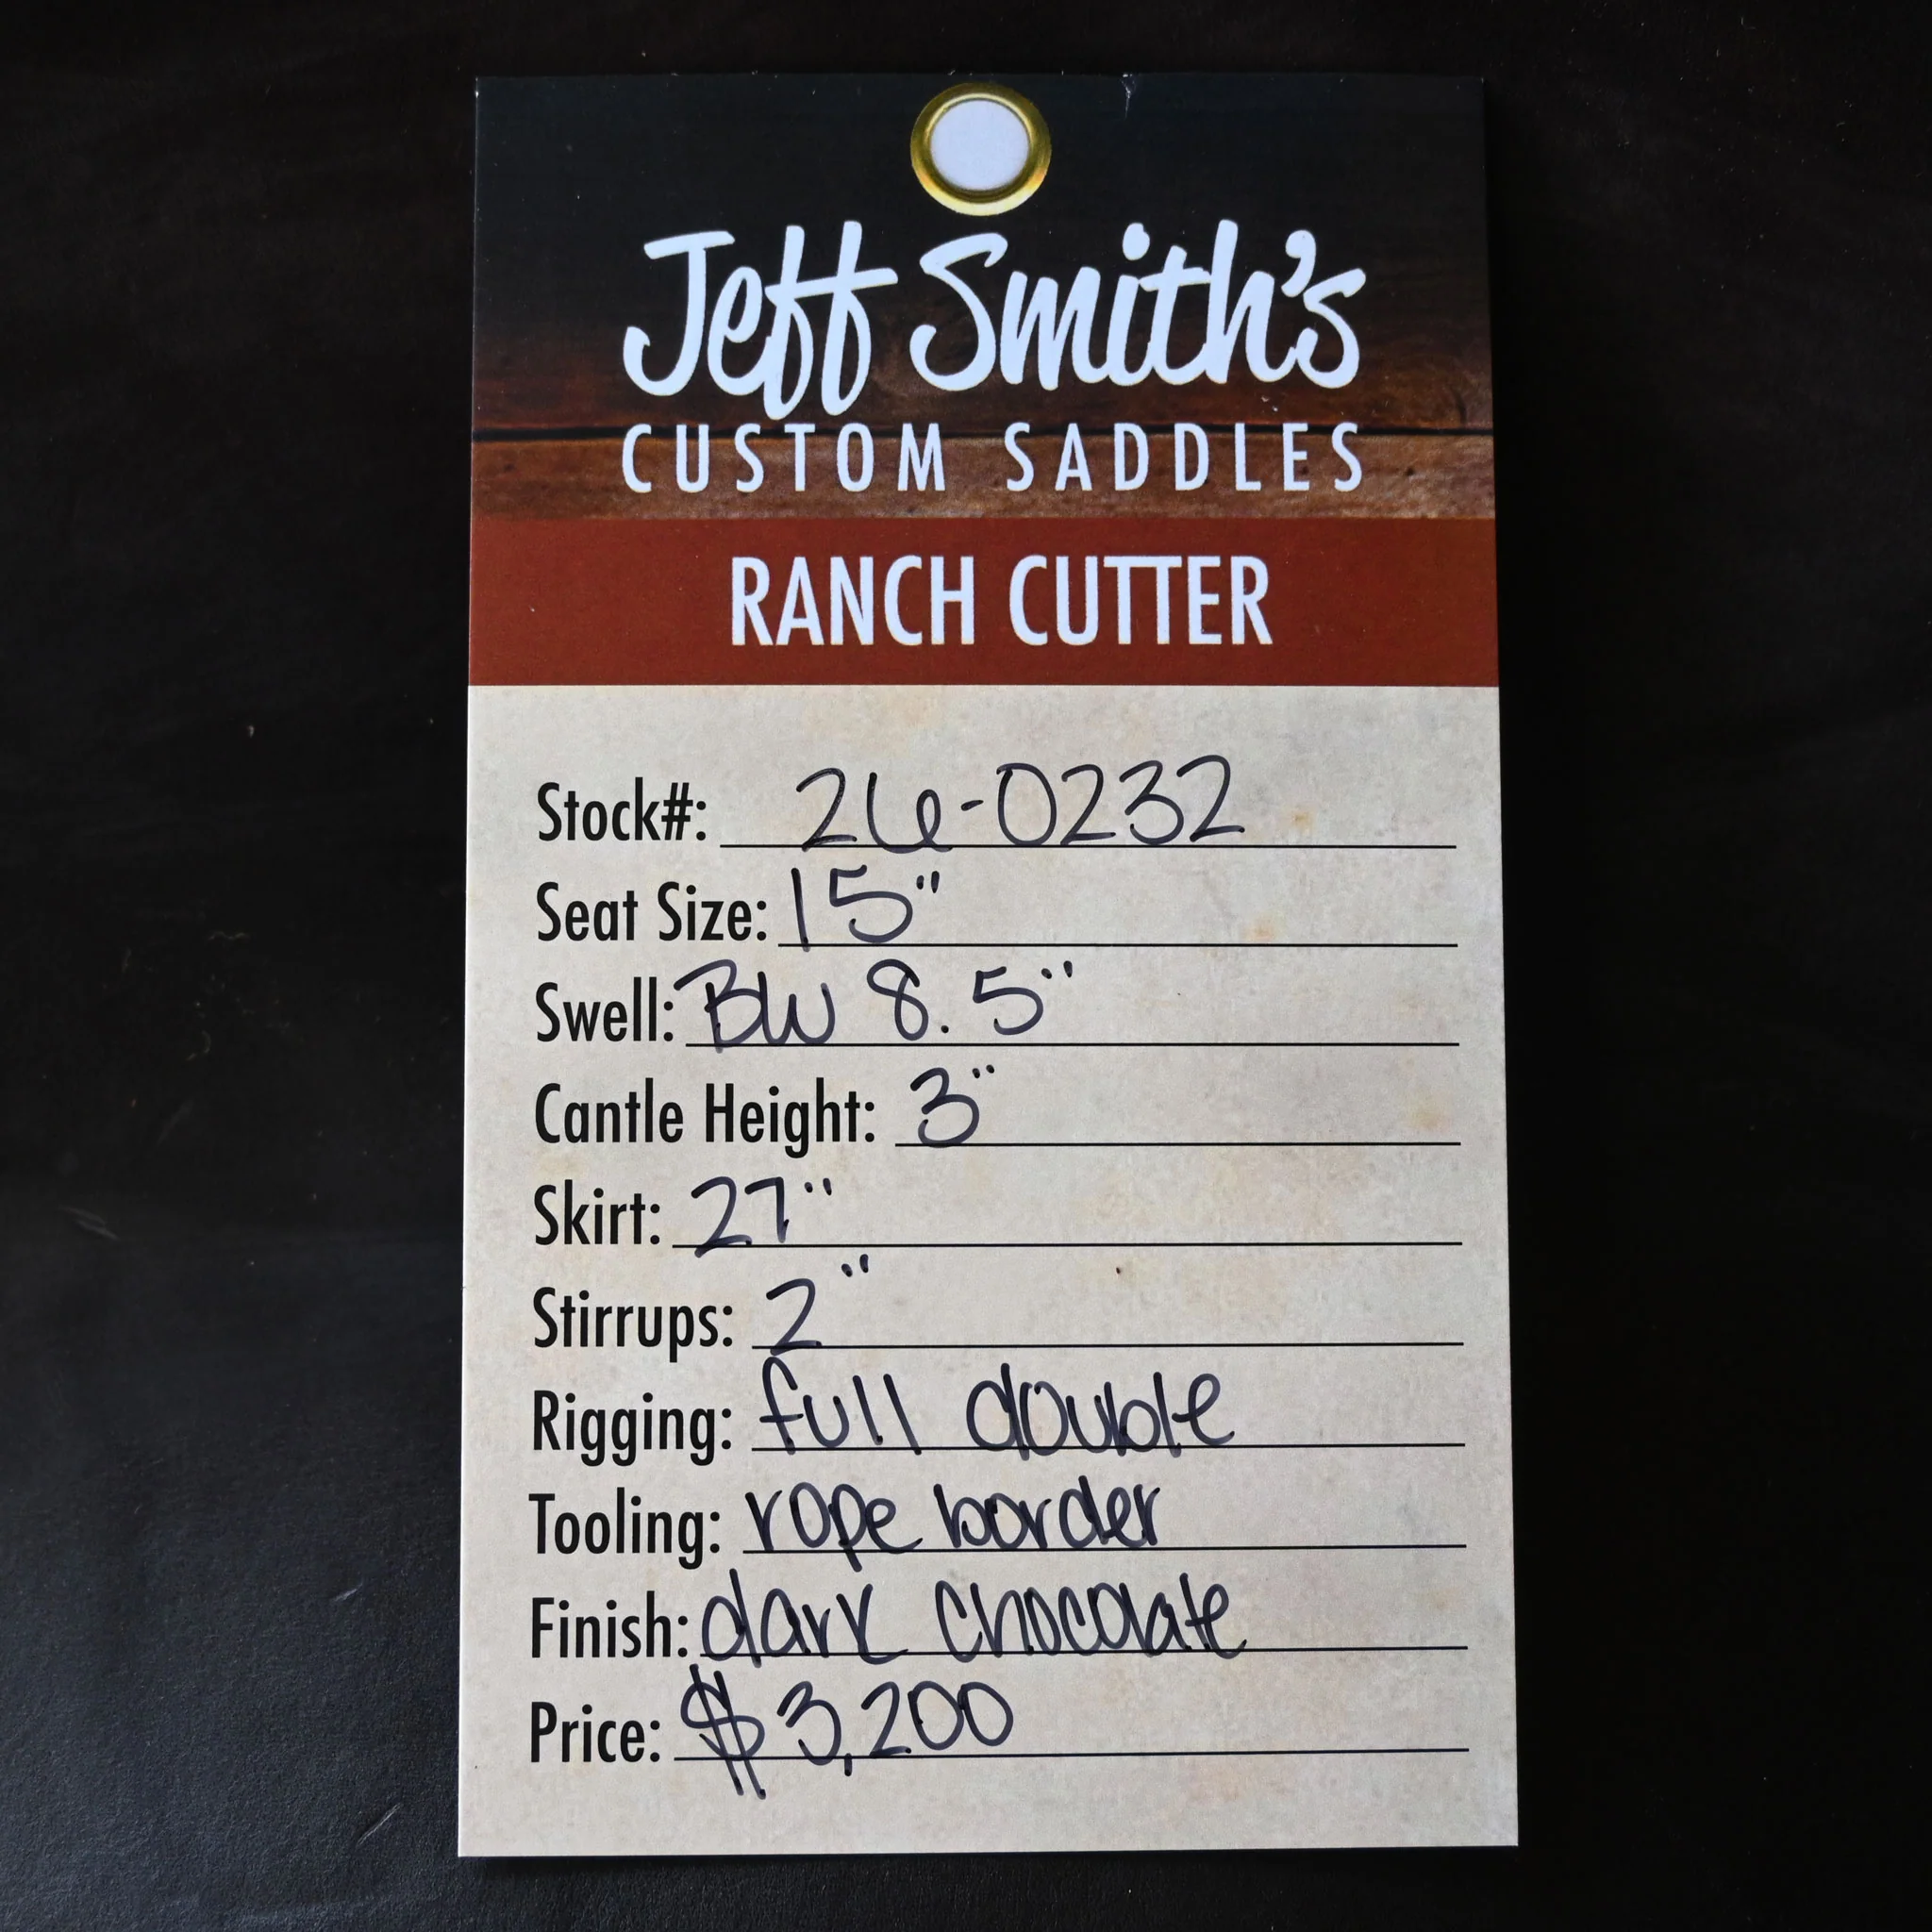 Jeff Smith's
CUSTOM SADDLES
RANCH CUTTER
Stock#: 26-0232
Seat Size: 15"
Swell: BW 8.5"
Cantle Height: 3"
Skirt: 27"
Stirrups: 2"
Rigging: full double
Tooling: rope border
Finish: dark chocolate
Price: $3,200